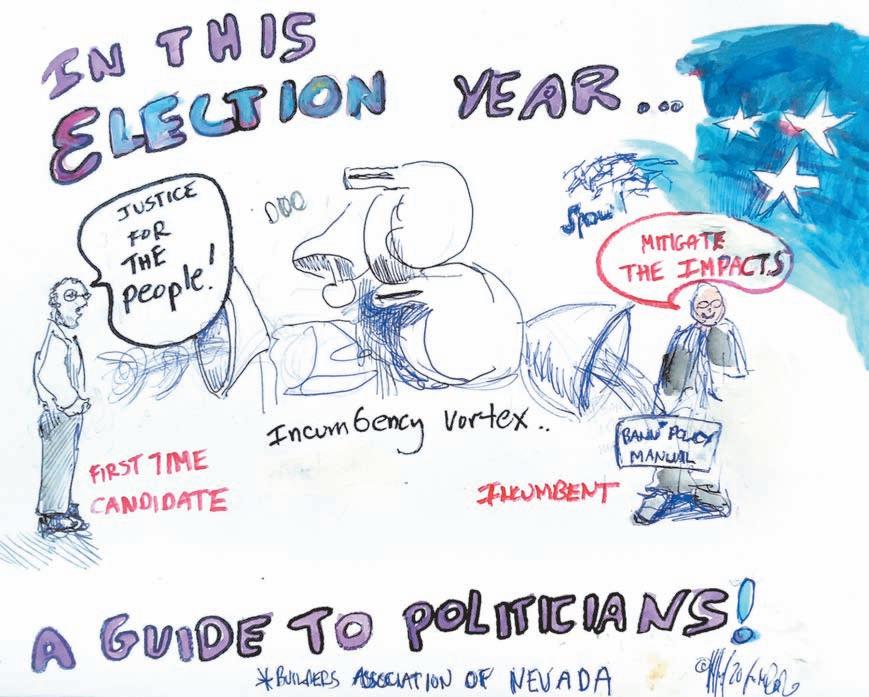 IN THIS
ELECTION YEAR...
JUSTICE
FOR
THE
people!
MITIGATE
THE IMPACTS
Incumbency Vortex..
BANN* POLICY
MANUAL
FIRST TIME
CANDIDATE
INCUMBENT
A GUIDE TO POLITICIANS!
*BUILDERS ASSOCIATION OF NEVADA